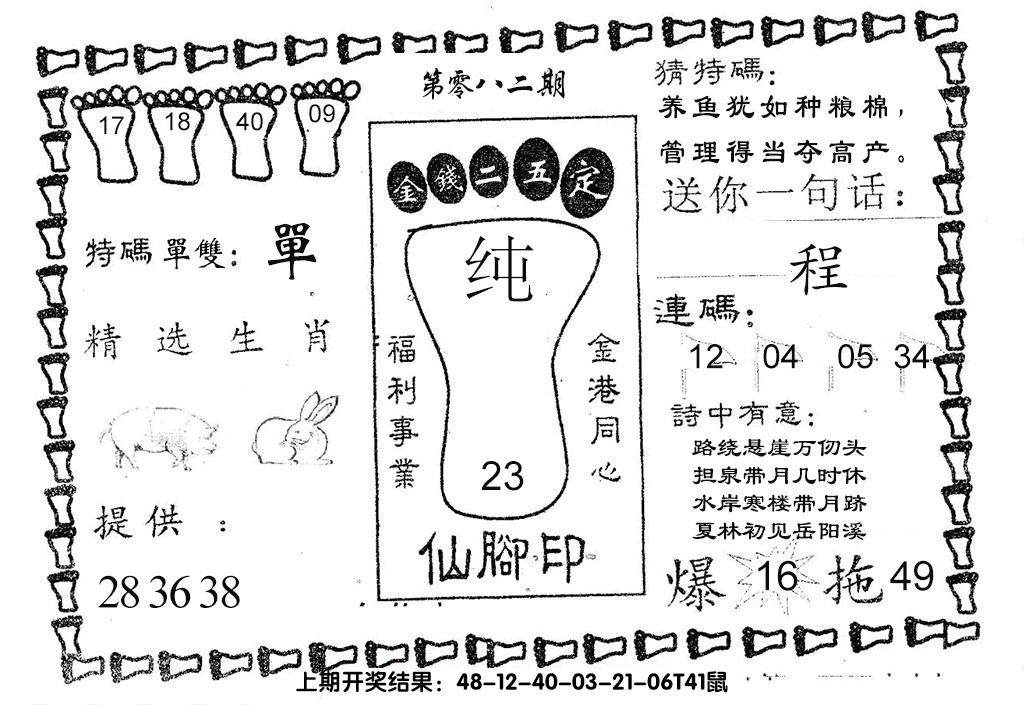 第零八二期
17 18 40 09
特碼單雙：單
精选生肖
提供：
28 36 38
金錢二五定
纯
福利事業
金港同心
23
仙腳印
猜特碼：
养鱼犹如种粮棉，
管理得当夺高产。
送你一句话：
程
連碼：
12 04 05 34
詩中有意：
路绕悬崖万仞头
担泉带月几时休
水岸寒楼带月跻
夏林初见岳阳溪
爆 16 拖 49
上期开奖结果：48-12-40-03-21-06T41鼠